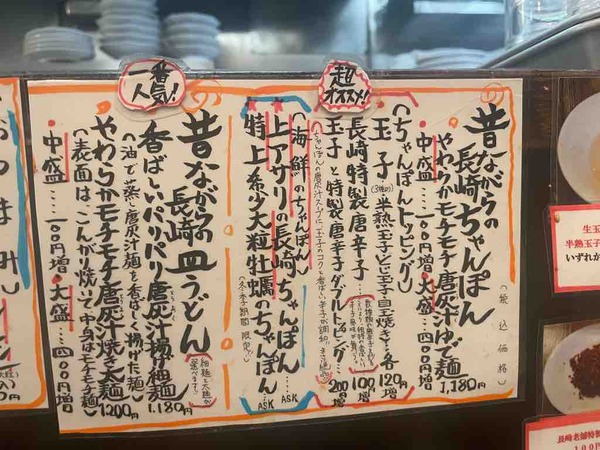 超
オススメ!
一番
人気!
(税込価格)
昔ながらの
長崎ちゃんぽん
やわらかモチモチ唐灰汁ゆで麺
1,180円
中盛…100円増 大盛…400円増
(ちゃんぽんトッピング)
玉子(3種の)半熟玉子とじ玉子目玉焼き各120円増
長崎特製唐辛子
100円増
玉子と特製唐辛子ダブルトッピング…200円増
(海鮮のちゃんぽん)
上アサリの長崎ちゃんぽん… ASK
特上希少大粒牡蠣のちゃんぽん… ASK
(冬季期間限定)
昔ながらの
長崎皿うどん
細麺と太麺が
選べます!
香ばしいパリパリ唐灰汁揚げ細麺
1,180円
(油で蒸し唐灰汁麺を香ばしく揚げた麺)
やわらかモチモチ唐灰汁焼き太麺
1,200円
(表面はこんがり焼いて中身はモチモチ麺)
中盛…100円増 大盛…400円増
おつまみ
生玉
半熟玉子
いずれか
長崎老舗特製
100円